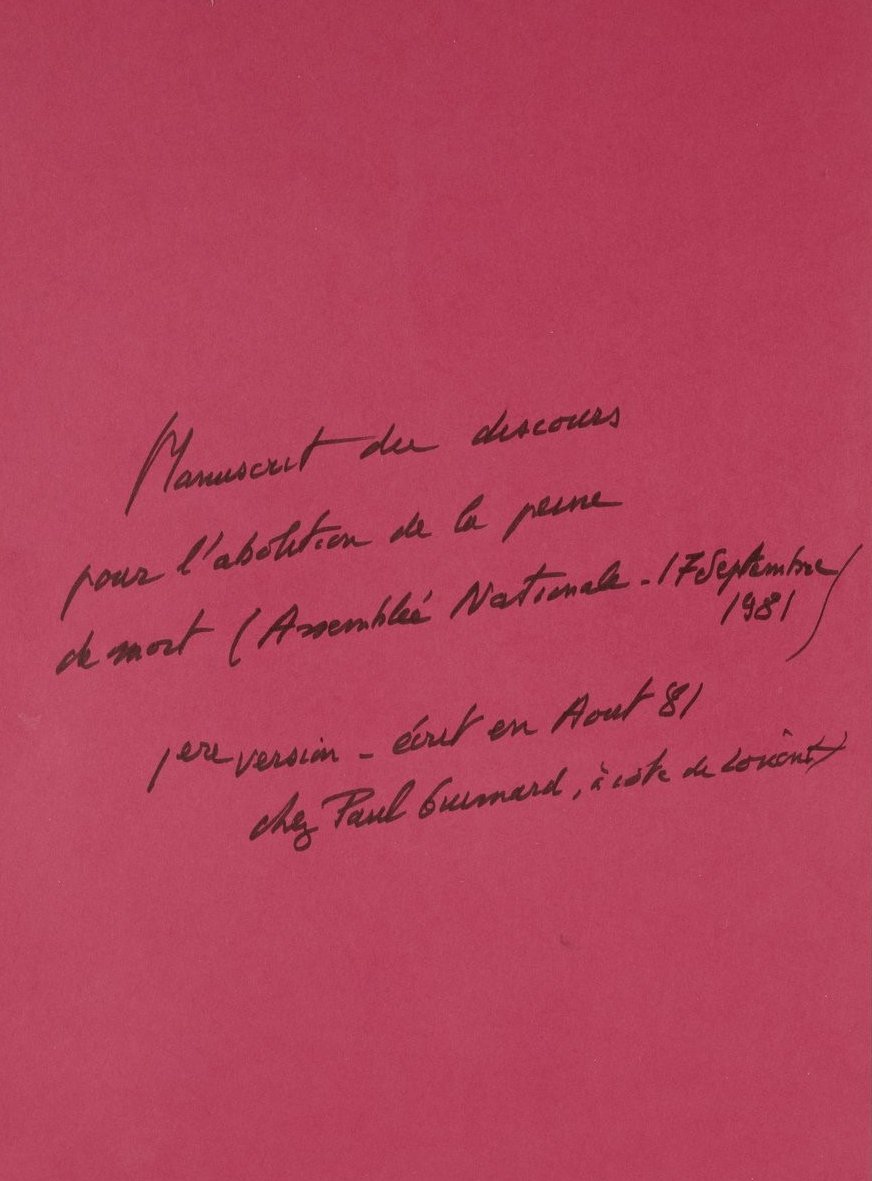 Manuscrit du discours
pour l'abolition de la peine
de mort (Assemblée Nationale - 17 Septembre
1981)
1ere version - écrit en Aout 81
chez Paul Guimard, à coté de Lorient